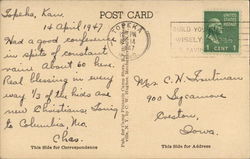 POST CARD
Topeka, Kan.
14 April 1947
Had a good conference
in spite of constant
rain. About 60 here.
Real blessing in every
way 1/3 of the kids are
new Christians. Going
to Columbia, Mo.
Chas.
This Side for Correspondence
TOPEKA
1947
BUILD YOUR
1 CENT 1
Mrs. C. H.
900 Sycamore
Iowa.
This Side for Address